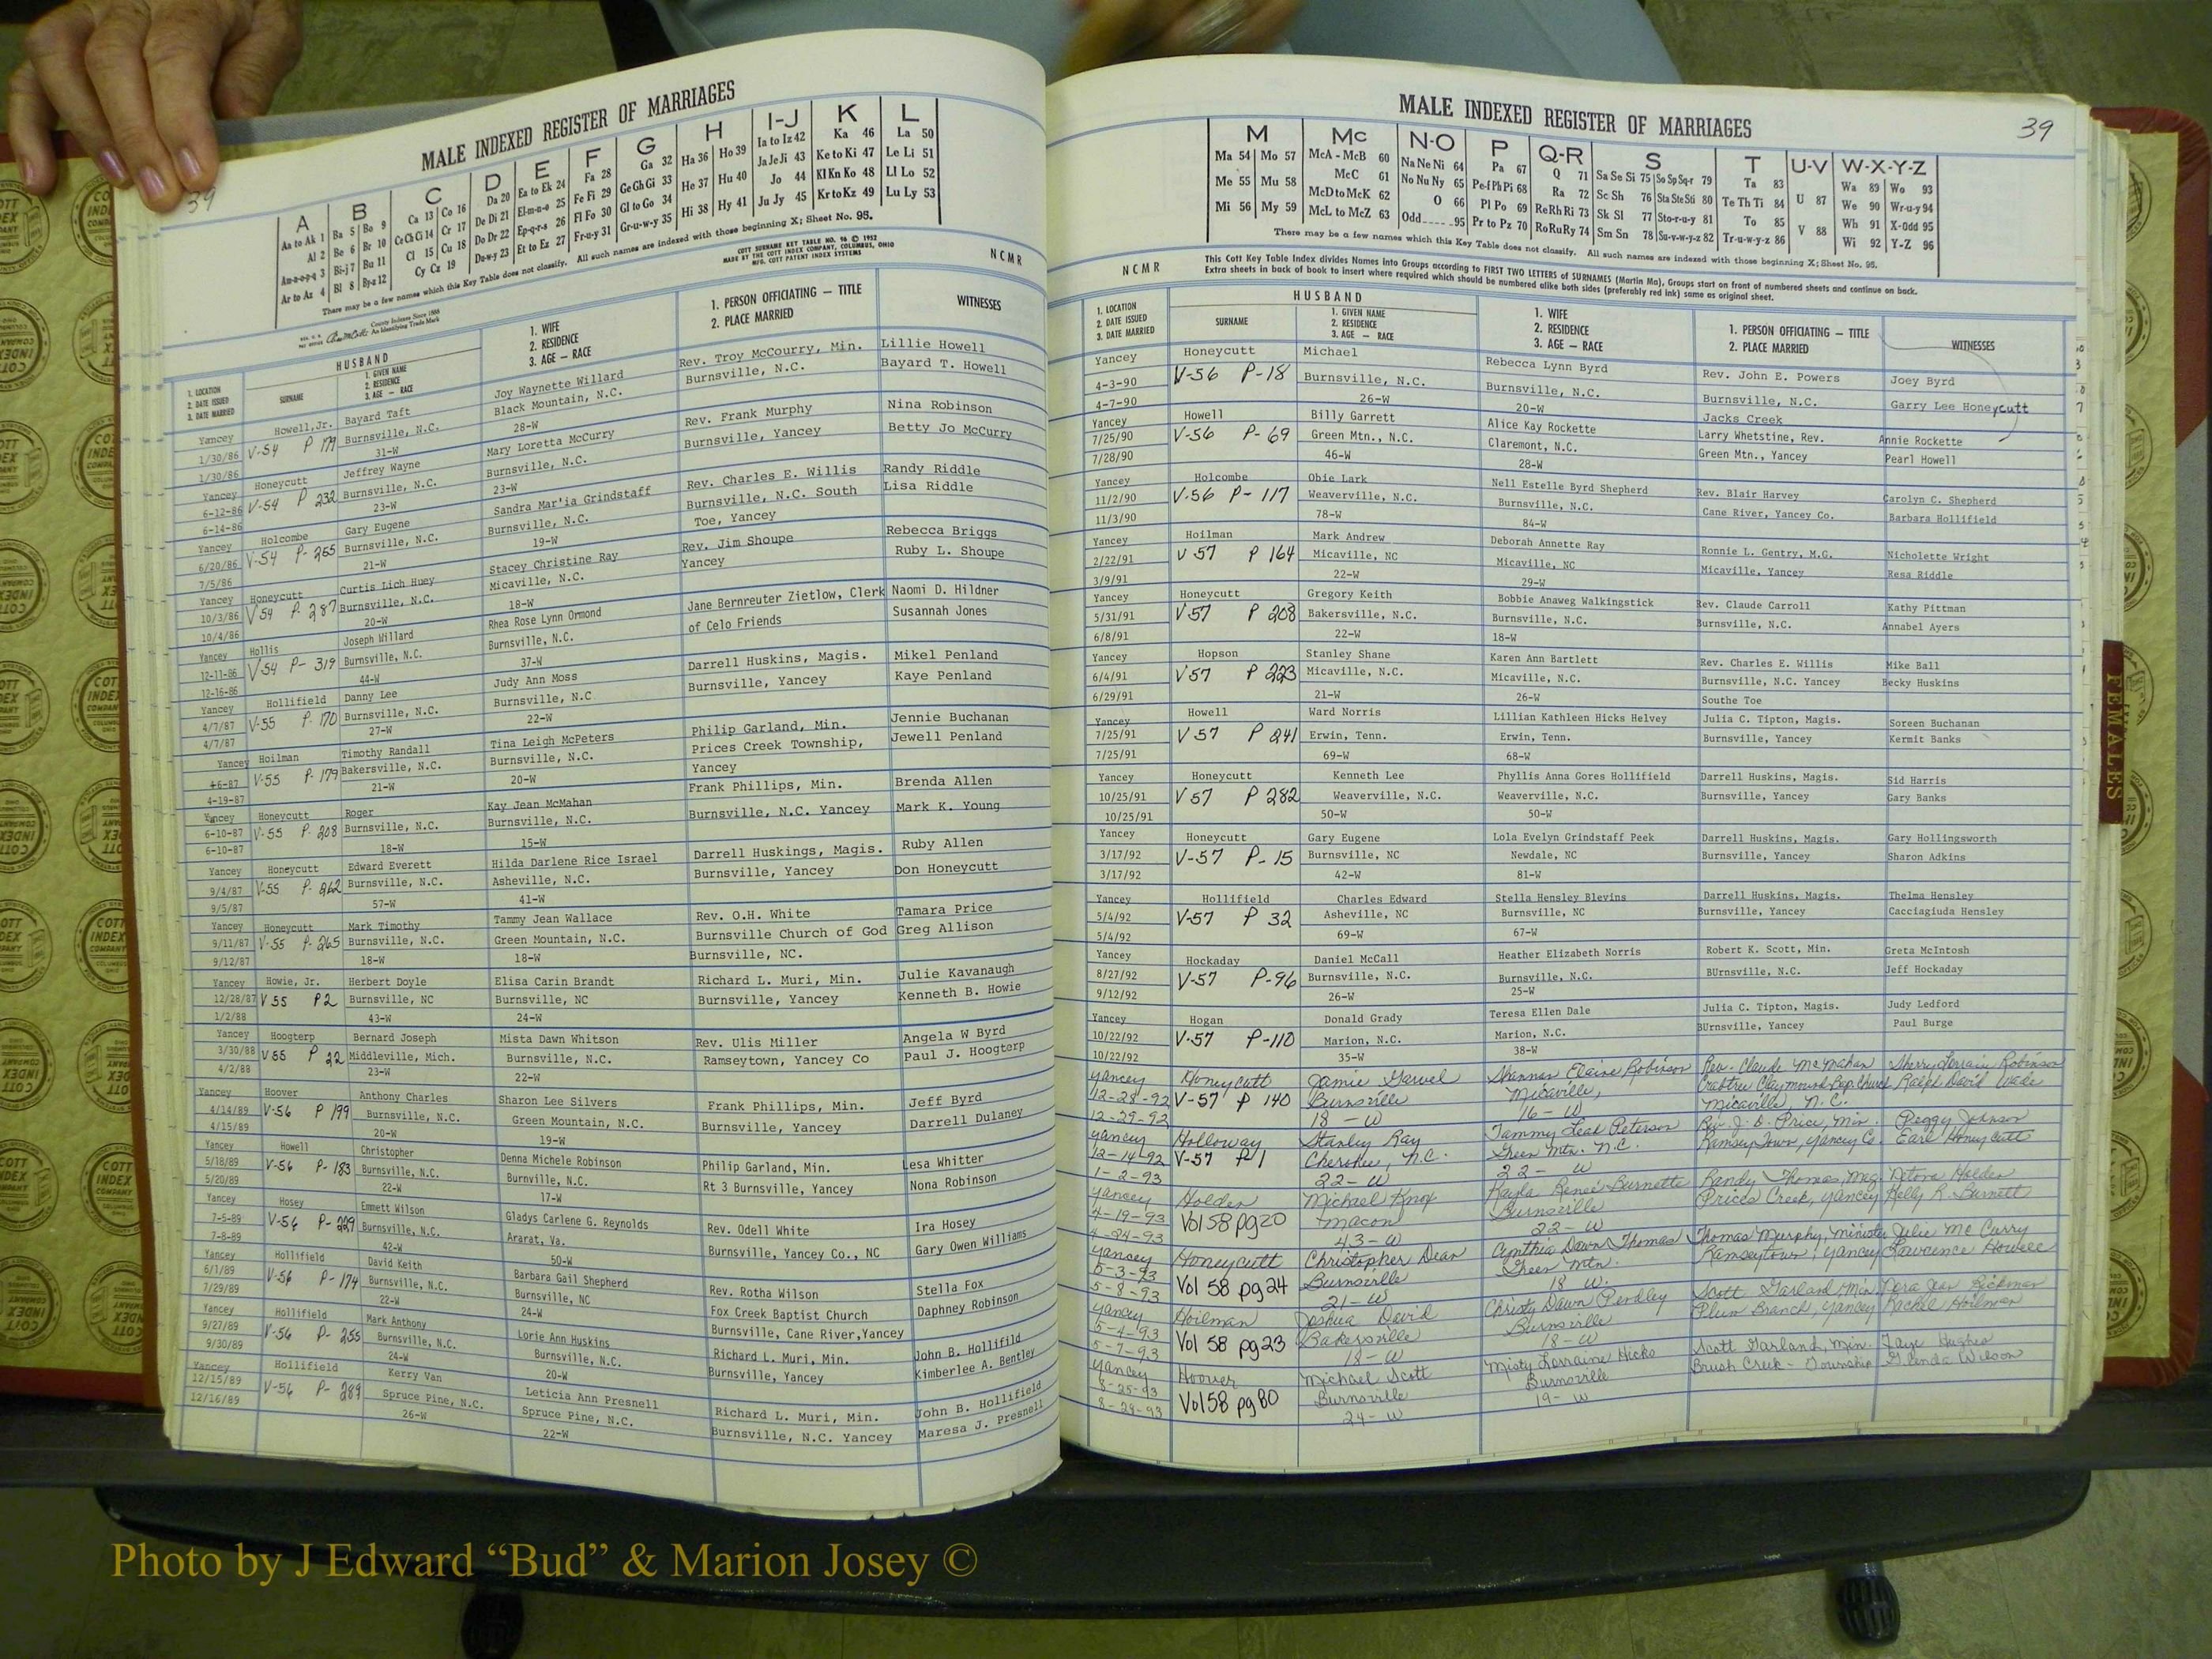 MALE INDEXED REGISTER OF MARRIAGES
39
A B C D E F G H I-J K L
Aa to Ak 1 Ba 5 Bo 9 Ca 13 Co 16 Da 20 Ea to Ek 24 Fa 28 Ga 32 Ha 36 Ho 39 Ia to Iz 42 Ka 46 La 50
Al 2 Be 6 Br 10 Ce Ch Ci 14 Cr 17 De Di 21 El-m-n-o 25 Fe Fi 29 Ge Gh Gi 33 He 37 Hu 40 Ja Je Ji 43 Ke to Ki 47 Le Li 51
Am-n-o-p-q 3 Bi-j 7 Bu 11 Cl 15 Cu 18 Do Dr 22 Ep-q-r-s 26 Fl Fo 30 Gl to Go 34 Hi 38 Hy 41 Jo 44 Kl Kn Ko 48 Ll Lo 52
Ar to Az 4 Bl 8 By-z 12 Cy Cz 19 Du-w-y 23 Et to Ez 27 Fr-u-y 31 Gr-u-w-y 35 Ju Jy 45 Kr to Kz 49 Lu Ly 53
There may be a few names which this Key Table does not classify. All such names are indexed with those beginning X; Sheet No. 95.
COTT SURNAME KEY TABLE NO. 96 © 1952
MADE BY THE COTT INDEX COMPANY, COLUMBUS, OHIO
MFG. COTT PATENT INDEX SYSTEMS
NCMR
County Indexes Since 1888
An Identifying Trade Mark
HUSBAND
1. LOCATION
2. DATE ISSUED
3. DATE MARRIED
SURNAME
1. GIVEN NAME
2. RESIDENCE
3. AGE — RACE
1. WIFE
2. RESIDENCE
3. AGE — RACE
1. PERSON OFFICIATING — TITLE
2. PLACE MARRIED
WITNESSES
Yancey Howell,Jr. Bayard Taft Joy Waynette Willard Rev. Troy McCourry, Min. Lillie Howell
1/30/86 V-54 P 179 Burnsville, N.C. Black Mountain, N.C. Burnsville, N.C. Bayard T. Howell
1/30/86 31-W 28-W
Yancey Honeycutt Jeffrey Wayne Mary Loretta McCurry Rev. Frank Murphy Nina Robinson
6-12-86 V-54 P 232 Burnsville, N.C. Burnsville, N.C. Burnsville, Yancey Betty Jo McCurry
6-14-86 23-W 23-W
Yancey Holcombe Gary Eugene Sandra Mar'ia Grindstaff Rev. Charles E. Willis Randy Riddle
6/20/86 V-54 P-255 Burnsville, N.C. Burnsville, N.C. Burnsville, N.C. South Lisa Riddle
7/5/86 21-W 19-W Toe, Yancey
Yancey Honeycutt Curtis Lich Huey Stacey Christine Ray Rev. Jim Shoupe Rebecca Briggs
10/3/86 V54 P. 287 Burnsville, N.C. Micaville, N.C. Yancey Ruby L. Shoupe
10/4/86 20-W 18-W
Yancey Hollis Joseph Willard Rhea Rose Lynn Ormond Jane Bernreuter Zietlow, Clerk Naomi D. Hildner
12-11-86 V-54 P- 319 Burnsville, N.C. Burnsville, N.C. of Celo Friends Susannah Jones
12-16-86 44-W 37-W
Yancey Hollifield Danny Lee Judy Ann Moss Darrell Huskins, Magis. Mikel Penland
4/7/87 V-55 P. 170 Burnsville, N.C. Burnsville, N.C Burnsville, Yancey Kaye Penland
4/7/87 27-W 22-W
Yancey Hoilman Timothy Randall Tina Leigh McPeters Philip Garland, Min. Jennie Buchanan
4-6-87 V-55 P-179 Bakersville, N.C. Burnsville, N.C. Prices Creek Township, Jewell Penland
4-19-87 21-W 20-W Yancey
Yancey Honeycutt Roger Kay Jean McMahan Frank Phillips, Min. Brenda Allen
6-10-87 V-55 P. 208 Burnsville, N.C. Burnsville, N.C. Burnsville, N.C. Yancey Mark K. Young
6-10-87 18-W 15-W
Yancey Honeycutt Edward Everett Hilda Darlene Rice Israel Darrell Huskings, Magis. Ruby Allen
9/4/87 V-55 P-262 Burnsville, N.C. Asheville, N.C. Burnsville, Yancey Don Honeycutt
9/5/87 57-W 41-W
Yancey Honeycutt Mark Timothy Tammy Jean Wallace Rev. O.H. White Tamara Price
9/11/87 V-55 P-265 Burnsville, N.C. Green Mountain, N.C. Burnsville Church of God Greg Allison
9/12/87 18-W 18-W Burnsville, NC.
Yancey Howie, Jr. Herbert Doyle Elisa Carin Brandt Richard L. Muri, Min. Julie Kavanaugh
12/28/87 V 55 P2 Burnsville, NC Burnsville, NC Burnsville, Yancey Kenneth B. Howie
1/2/88 43-W 24-W
Yancey Hoogterp Bernard Joseph Mista Dawn Whitson Rev. Ulis Miller Angela W Byrd
3/30/88 V 55 P 22 Middleville, Mich. Burnsville, N.C. Ramseytown, Yancey Co Paul J. Hoogterp
4/2/88 23-W 22-W
Yancey Hoover Anthony Charles Sharon Lee Silvers Frank Phillips, Min. Jeff Byrd
4/14/89 V-56 P 199 Burnsville, N.C. Green Mountain, N.C. Burnsville, Yancey Darrell Dulaney
4/15/89 20-W 19-W
Yancey Howell Christopher Denna Michele Robinson Philip Garland, Min. Lesa Whitter
5/18/89 V-56 P-183 Burnsville, N.C. Burnville, N.C. Rt 3 Burnsville, Yancey Nona Robinson
5/20/89 22-W 17-W
Yancey Hosey Emmett Wilson Gladys Carlene G. Reynolds Rev. Odell White Ira Hosey
7-5-89 V-56 P-229 Burnsville, N.C. Ararat, Va. Burnsville, Yancey Co., NC Gary Owen Williams
7-8-89 42-W 50-W
Yancey Hollifield David Keith Barbara Gail Shepherd Rev. Rotha Wilson Stella Fox
6/1/89 V-56 P-174 Burnsville, N.C. Burnsville, NC Fox Creek Baptist Church Daphney Robinson
7/29/89 22-W 24-W Burnsville, Cane River,Yancey
Yancey Hollifield Mark Anthony Lorie Ann Huskins Richard L. Muri, Min. John B. Hollifild
9/27/89 V-56 P- 255 Burnsville, N.C. Burnsville, N.C. Burnsville, Yancey Kimberlee A. Bentley
9/30/89 24-W 20-W
Yancey Hollifield Kerry Van Leticia Ann Presnell Richard L. Muri, Min. John B. Hollifield
12/15/89 V-56 P- 289 Spruce Pine, N.C. Spruce Pine, N.C. Burnsville, N.C. Yancey Maresa J. Presnell
12/16/89 26-W 22-W
MALE INDEXED REGISTER OF MARRIAGES
39
M Mc N-O P Q-R S T U-V W-X-Y-Z
Ma 54 Mo 57 McA - McB 60 Na Ne Ni 64 Pa 67 Q 71 Sa Se Si 75 So Sp Sq-r 79 Ta 83 U 87 Wa 89 Wo 93
Me 55 Mu 58 McC 61 No Nu Ny 65 Pe-f Ph Pi 68 Ra 72 Sc Sh 76 Sta Ste Sti 80 Te Th Ti 84 V 88 We 90 Wr-u-y 94
Mi 56 My 59 McD to McK 62 O 66 Pl Po 69 Re Rh Ri 73 Sk Sl 77 Sto-r-u-y 81 To 85 Wh 91 X-Odd 95
McL to McZ 63 Odd 95 Pr to Pz 70 Ro Ru Ry 74 Sm Sn 78 Su-v-w-y-z 82 Tr-u-w-y-z 86 Wi 92 Y-Z 96
There may be a few names which this Key Table does not classify. All such names are indexed with those beginning X; Sheet No. 95.
This Cott Key Table Index divides Names into Groups according to FIRST TWO LETTERS of SURNAMES (Martin Ma), Groups start on front of numbered sheets and continue on back.
Extra sheets in back of book to insert where required which should be numbered alike both sides (preferably red ink) same as original sheet.
NCMR
HUSBAND
1. LOCATION
2. DATE ISSUED
3. DATE MARRIED
SURNAME
1. GIVEN NAME
2. RESIDENCE
3. AGE — RACE
1. WIFE
2. RESIDENCE
3. AGE — RACE
1. PERSON OFFICIATING — TITLE
2. PLACE MARRIED
WITNESSES
Yancey Honeycutt Michael Rebecca Lynn Byrd Rev. John E. Powers Joey Byrd
4-3-90 V-56 P-18 Burnsville, N.C. Burnsville, N.C. Burnsville, N.C. Garry Lee Honeycutt
4-7-90 26-W 20-W Jacks Creek
Yancey Howell Billy Garrett Alice Kay Rockette Larry Whetstine, Rev. Annie Rockette
7/25/90 V-56 P-69 Green Mtn., N.C. Claremont, N.C. Green Mtn., Yancey Pearl Howell
7/28/90 46-W 28-W
Yancey Holcombe Obie Lark Nell Estelle Byrd Shepherd Rev. Blair Harvey Carolyn C. Shepherd
11/2/90 V-56 P-117 Weaverville, N.C. Burnsville, N.C. Cane River, Yancey Co. Barbara Hollifield
11/3/90 78-W 84-W
Yancey Hoilman Mark Andrew Deborah Annette Ray Ronnie L. Gentry, M.G. Nicholette Wright
2/22/91 V 57 P 164 Micaville, NC Micaville, NC Micaville, Yancey Resa Riddle
3/9/91 22-W 29-W
Yancey Honeycutt Gregory Keith Bobbie Anaweg Walkingstick Rev. Claude Carroll Kathy Pittman
5/31/91 V 57 P 208 Bakersville, N.C. Burnsville, N.C. Burnsville, N.C. Annabel Ayers
6/8/91 22-W 18-W
Yancey Hopson Stanley Shane Karen Ann Bartlett Rev. Charles E. Willis Mike Ball
6/4/91 V 57 P 223 Micaville, N.C. Micaville, N.C. Burnsville, N.C. Yancey Becky Huskins
6/29/91 21-W 26-W Southe Toe
Yancey Howell Ward Norris Lillian Kathleen Hicks Helvey Julia C. Tipton, Magis. Soreen Buchanan
7/25/91 V 57 P 241 Erwin, Tenn. Erwin, Tenn. Burnsville, Yancey Kermit Banks
7/25/91 69-W 68-W
Yancey Honeycutt Kenneth Lee Phyllis Anna Gores Hollifield Darrell Huskins, Magis. Sid Harris
10/25/91 V 57 P 282 Weaverville, N.C. Weaverville, N.C. Burnsville, Yancey Gary Banks
10/25/91 50-W 50-W
Yancey Honeycutt Gary Eugene Lola Evelyn Grindstaff Peek Darrell Huskins, Magis. Gary Hollingsworth
3/17/92 V-57 P-15 Burnsville, NC Newdale, NC Burnsville, Yancey Sharon Adkins
3/17/92 42-W 81-W
Yancey Hollifield Charles Edward Stella Hensley Blevins Darrell Huskins, Magis. Thelma Hensley
5/4/92 V-57 P 32 Asheville, NC Burnsville, NC Burnsville, Yancey Cacciagiuda Hensley
5/4/92 69-W 67-W
Yancey Hockaday Daniel McCall Heather Elizabeth Norris Robert K. Scott, Min. Greta McIntosh
8/27/92 V-57 P-96 Burnsville, N.C. Burnsville, N.C. BUrnsville, N.C. Jeff Hockaday
9/12/92 26-W 25-W
Yancey Hogan Donald Grady Teresa Ellen Dale Julia C. Tipton, Magis. Judy Ledford
10/22/92 V-57 P-110 Marion, N.C. Marion, N.C. BUrnsville, Yancey Paul Burge
10/22/92 35-W 38-W
Yancey Honeycutt Jamie Garvel Shannan Elaine Robinson Rev. Claude McMahan Sherry Lorrain Robinson
12-28-92 V-57 P 140 Burnsville Micaville, Crabtree Claymound Bap. Church Ralph David Wade
12-29-92 18-W 16-W Micaville, N.C.
Yancey Holloway Stanley Ray Tammy Leah Peterson Rev. J. B. Price, Min. Peggy Johnson
12-14-92 V-57 P 1 Cherokee, N.C. Green Mtn. N.C. Ramseytown, Yancey Co. Earl Honeycutt
1-2-93 22-W 22-W
Yancey Holden Michael Knox Kayla Reneé Burnette Randy Thomas, Mag. Holden
4-19-93 Vol 58 pg 20 Macon Burnsville Prices Creek, Yancey Kelly R. Burnett
4-24-93 43-W 22-W
Yancey Honeycutt Christopher Dean Cynthia Dawn Thomas Thomas Murphy, minister Julie McCurry
5-3-93 Vol 58 pg 24 Burnsville Green Mtn. Ramseytown, Yancey Lawrence Howell
5-8-93 21-W 18 W.
Yancey Hoilman Joshua David Christy Dawn Pendley Scott Garland, Min. Jean Rickman
5-4-93 Vol 58 pg 23 Bakersville Burnsville Plum Branch, Yancey Rachel Hoilman
5-7-93 18-W 18-W
Yancey Hoover Michael Scott Misty Lorraine Hicks Scott Garland, Min. Faye Hughes
8-25-93 Vol 58 pg 80 Burnsville Burnsville Brush Creek - Township Glenda Wilson
8-29-93 24-W 19-W
FEMALES
Photo by J Edward “Bud” & Marion Josey ©